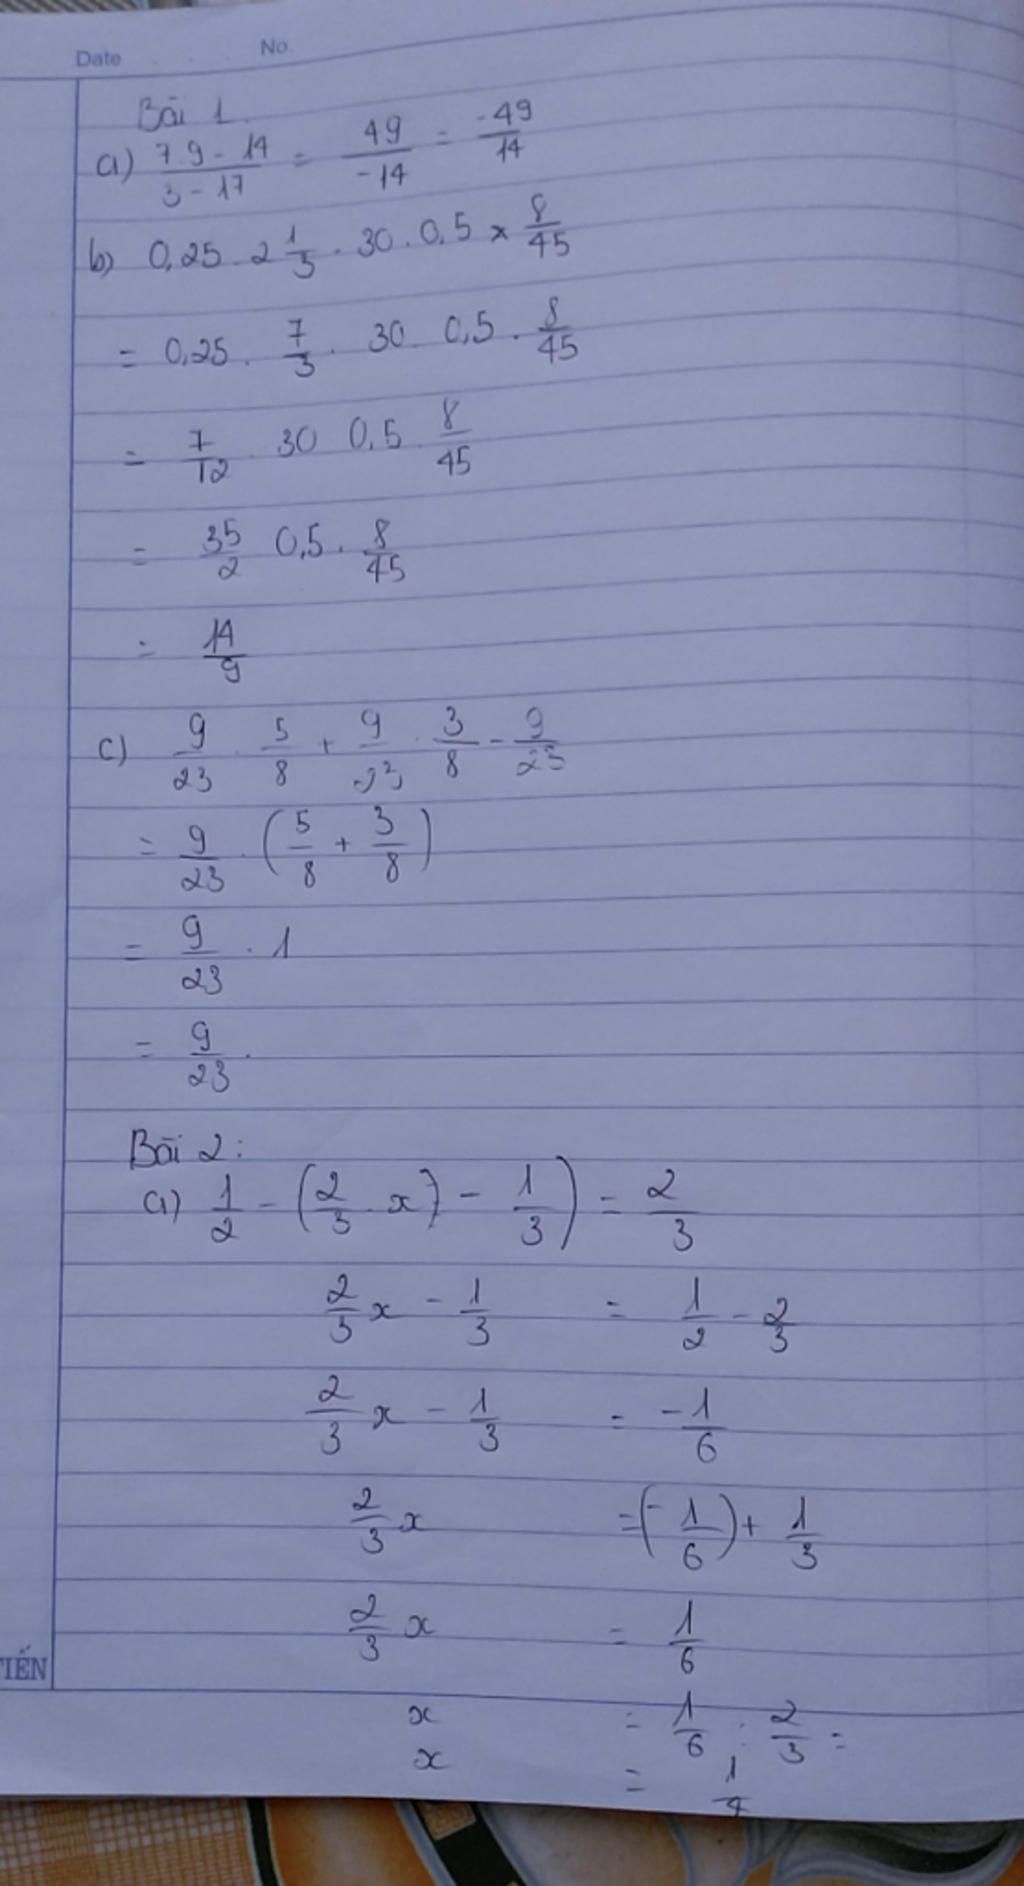 Date No.
Bài 1.
a) \frac{7.9-14}{3-17} = \frac{49}{-14} = \frac{-49}{14}
b) 0,25 . 2\frac{1}{3} . 30 . 0,5 x \frac{8}{45}
= 0,25 . \frac{7}{3} . 30 . 0,5 . \frac{8}{45}
= \frac{7}{12} . 30 0,5 . \frac{8}{45}
= \frac{35}{2} 0,5 . \frac{8}{45}
= \frac{14}{9}
c) \frac{9}{23} . \frac{5}{8} + \frac{9}{23} . \frac{3}{8} - \frac{9}{23}
= \frac{9}{23} . (\frac{5}{8} + \frac{3}{8})
= \frac{9}{23} . 1
= \frac{9}{23} .
Bài 2:
a) \frac{1}{2} - (\frac{2}{3} . x) - \frac{1}{3}) = \frac{2}{3}
\frac{2}{3}x - \frac{1}{3} = \frac{1}{2} - \frac{2}{3}
\frac{2}{3}x - \frac{1}{3} = \frac{-1}{6}
\frac{2}{3}x = (-\frac{1}{6}) + \frac{1}{3}
\frac{2}{3}x = \frac{1}{6}
TIẾN
x = \frac{1}{6} : \frac{2}{3} =
x = \frac{1}{4}